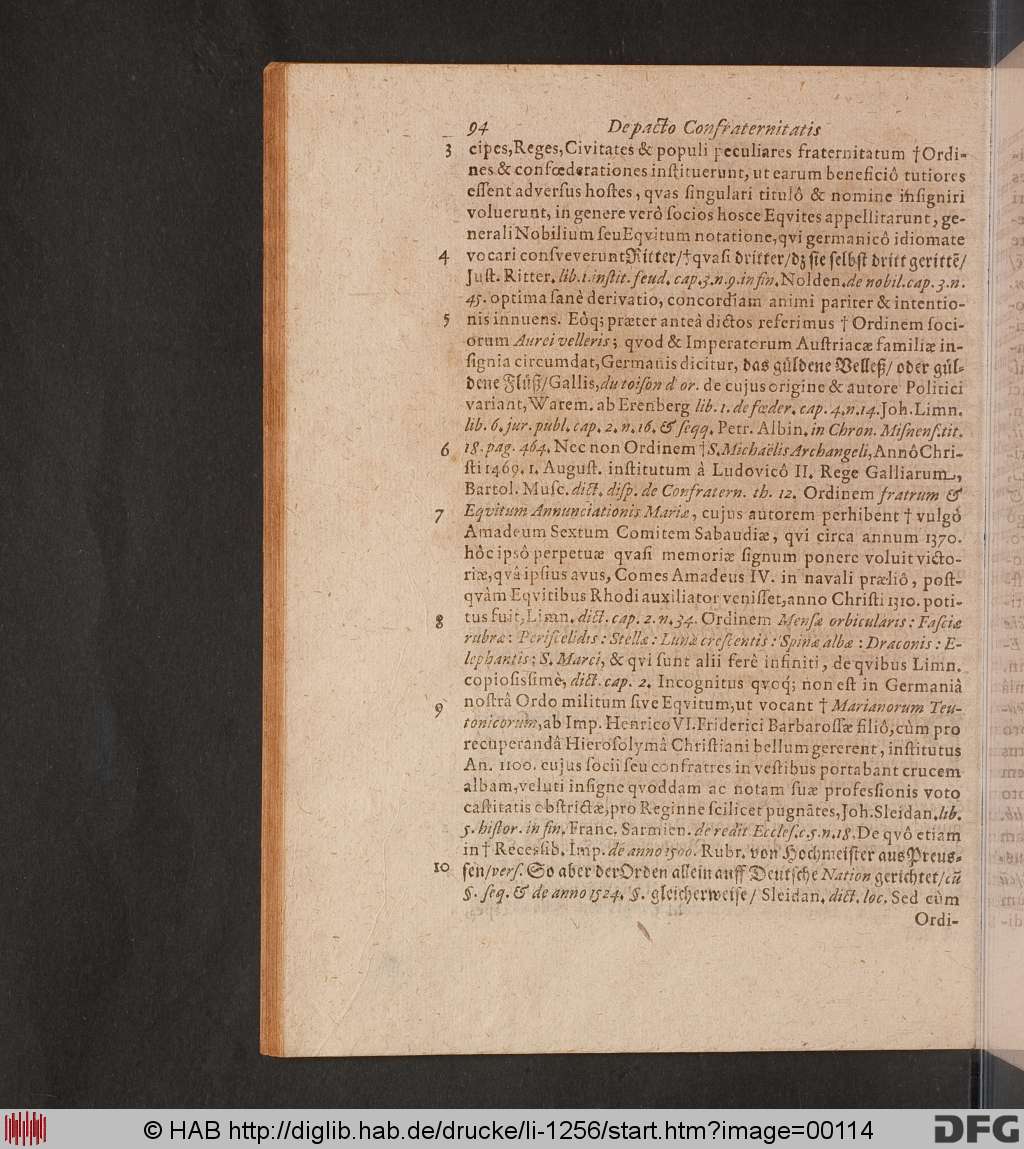 94 De pacto Confraternitatis
3 cipes, Reges, Civitates & populi peculiares fraternitatum † Ordi-
nes & confœderationes inſtituerunt, ut earum beneficiô tutiores
eſſent adverſus hoſtes, qvas ſingulari titulô & nomine inſigniri
voluerunt, in genere verò ſocios hosce Eqvites appellitarunt, ge-
nerali Nobilium ſeu Eqvitum notatione, qvi germanicô idiomate
4 vocari conſveverunt Ritter/ † qvaſi dritter/ dʒ ſie ſelbſt dritt gerittē/
Juſt. Ritter. lib. 1. inſtit. feud. cap. 3. n. 9. in fin. Nolden. de nobil. cap. 3. n.
45. optima ſanè derivatio, concordiam animi pariter & intentio-
5 nis innuens. Eôq; præter anteà dictos referimus † Ordinem ſoci-
orum Aurei velleris; qvod & Imperatorum Auſtriacæ familiæ in-
ſignia circumdat, Germanis dicitur, das güldene Velleß/ oder gül-
dene Flüß/ Gallis, du toiſon d or. de cujus origine & autore Politici
variant, Warem. ab Erenberg lib. 1. de fœder. cap. 4. n. 14. Joh. Limn.
lib. 6. jur. publ. cap. 2. n. 16. & ſeqq. Petr. Albin. in Chron. Miſnenſ. tit.
6 18. pag. 464. Nec non Ordinem † S. Michaëlis Archangeli, Annô Chri-
ſti 1469. 1. Auguſt. inſtitutum à Ludovicô II. Rege Galliarum,
Bartol. Muſc. dict. diſp. de Confratern. th. 12. Ordinem fratrum &
7 Eqvitum Annunciationis Mariæ, cujus autorem perhibent † vulgò
Amadeum Sextum Comitem Sabaudiæ, qvi circa annum 1370.
hôc ipsô perpetuæ qvaſi memoriæ ſignum ponere voluit victo-
riæ, qvâ ipſius avus, Comes Amadeus IV. in navali præliô, poſt-
qvàm Eqvitibus Rhodi auxiliator veniſſet, anno Chriſti 1310. poti-
8 tus fuit, Limn. dict. cap. 2. n. 34. Ordinem Menſæ orbicularis: Faſciæ
rubræ: Periſcelidis: Stellæ: Lunæ creſcentis: Spinæ albæ: Draconis: E-
lephantis: S. Marci, & qvi ſunt alii ferè infiniti, de qvibus Limn.
copioſiſſimè, dict. cap. 2. Incognitus qvoq; non eſt in Germaniâ
9 noſtrâ Ordo militum ſive Eqvitum, ut vocant † Marianorum Teu-
tonicorum, ab Imp. Henrico VI. Friderici Barbaroſſæ filiô, cùm pro
recuperandâ Hieroſolymâ Chriſtiani bellum gererent, inſtitutus
An. 1100. cujus ſocii ſeu confratres in veſtibus portabant crucem
albam, veluti inſigne qvoddam ac notam ſuæ profeſſionis voto
caſtitatis obſtrictæ, pro Reginne ſcilicet pugnātes, Joh. Sleidan. lib.
5. hiſtor. in fin. Franc. Sarmien. de redit Eccleſ. c. 5. n. 18. De qvô etiam
in † Receſsib. Imp. de anno 1500. Rubr. von Hochmeiſter aus Preuſ-
10 ſen/ verſ. So aber der Orden allein auff Deutſche Nation gerichtet/ cū
§. ſeq. & de anno 1524. §. gleicherweiſe/ Sleidan. dict. loc. Sed cùm
Ordi-
© HAB http://diglib.hab.de/drucke/li-1256/start.htm?image=00114
DFG